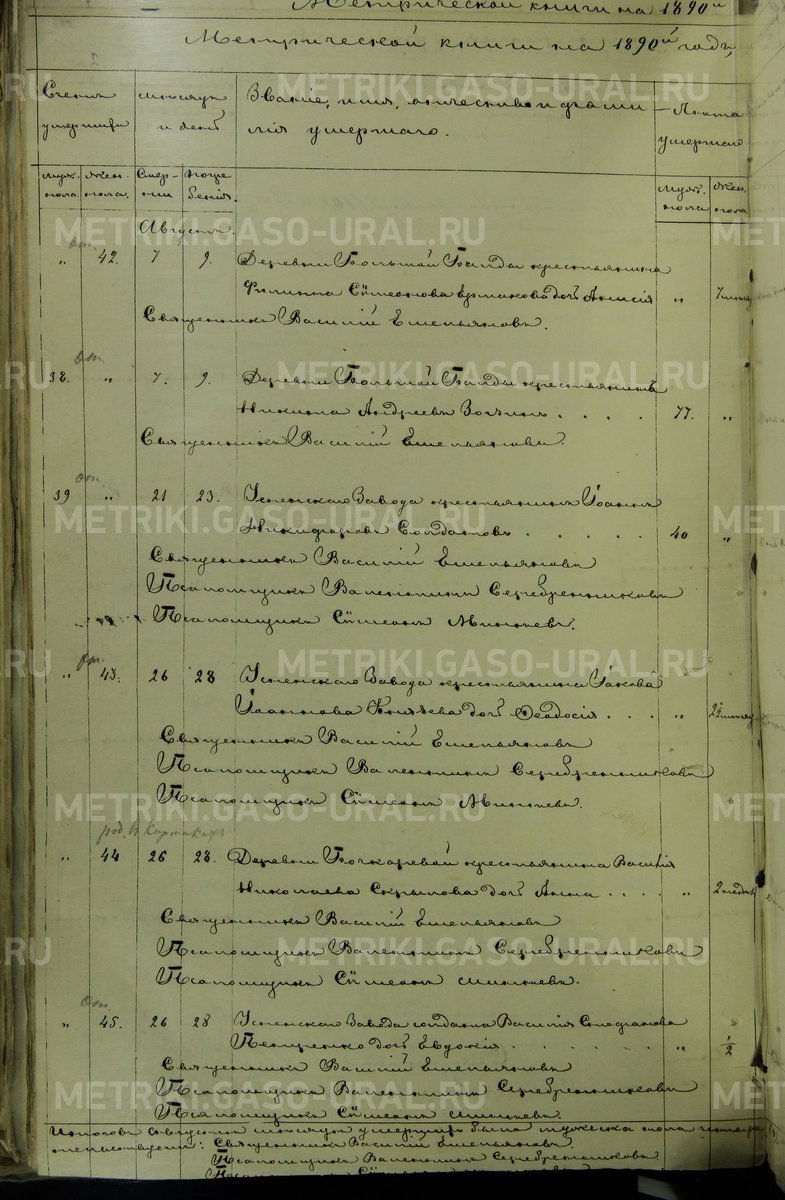 Метрической книги на 1890й
Метрической книги на 1890й годъ,
Счетъ умершихъ
Мѣсяцъ и день
Званіе, имя, отчество и фамилія умершаго.
Лѣта умершаго
муж. пола.
жен. пола.
Смерти
погребенія.
муж. пола
жен. пола
Августъ.
от.
" 42. 7 9. Деревни Большой Балды крестьянина
Филиппа Сѵмеонова Ермакова дочь Анисія "
Священникъ Василій Емельяновъ.
от.
38. " 7. 9. Деревни Большой Балды крестьянинъ
Никита Андреевъ . . . . 77. "
Священникъ Василій Емельяновъ.
от.
39 " 21 23. Успенскаго Завода крестьянинъ Іоаннъ
Никифоровъ Солдатовъ . . . . . . 40 "
Священникъ Василій Емельяновъ
Псаломщикъ Валентинъ Серебренниковъ
Псаломщикъ Сѵмеонъ Минѣевъ.
от.
" 43. 26 28 Успенскаго Завода крестьянина Іакова
Іоаннова Князева дочь Ѳеодосія . . . "
Священникъ Василій Емельяновъ
Псаломщикъ Валентинъ Серебренниковъ
Псаломщикъ Сѵмеонъ Минѣевъ.
род. въ
" 44 26 28. Деревни Бочкаревой крестьянина Василія
Николаева Скрыпова дочь Анна . . . . " 2 недѣл
Священникъ Василій Емельяновъ
Псаломщикъ Валентинъ Серебренниковъ
Псаломщикъ Сѵмеонъ Минѣевъ.
от.
" 45. 26 28 Успенскаго Завода солдата Василія Стефанова
Петренко дочь Евдокія . . . . . . " 1/2
Священникъ Василій Емельяновъ
Псаломщикъ Валентинъ Серебренниковъ
Псаломщикъ Сѵмеонъ Минѣевъ.
Итого въ Августѣ мѣсяцѣ умершихъ было мужеска пола
Священникъ Василій Емельяновъ
Псаломщикъ Валентинъ Серебренниковъ
METRIKI.GASO-URAL.RU